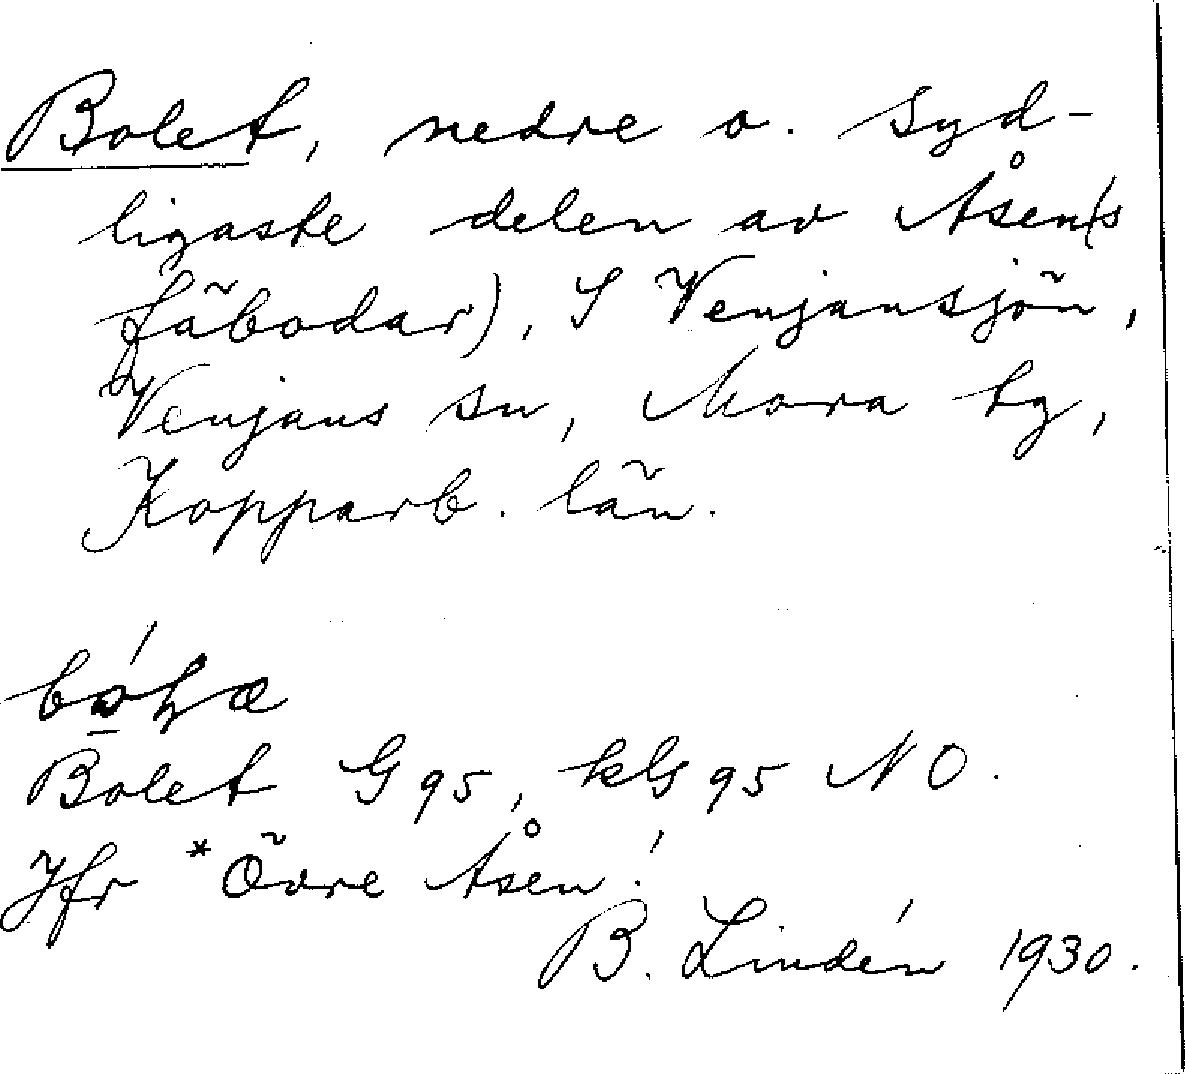 Bolet, nedre o. syd-
ligaste delen av Åsen(s
fäbodar), S Venjansjön,
Venjans sn, Mora tg,
Kopparb. län.
Bolet G 95, kbl 95 NO.
Jfr *Övre Åsen!
B. Lindén 1930.